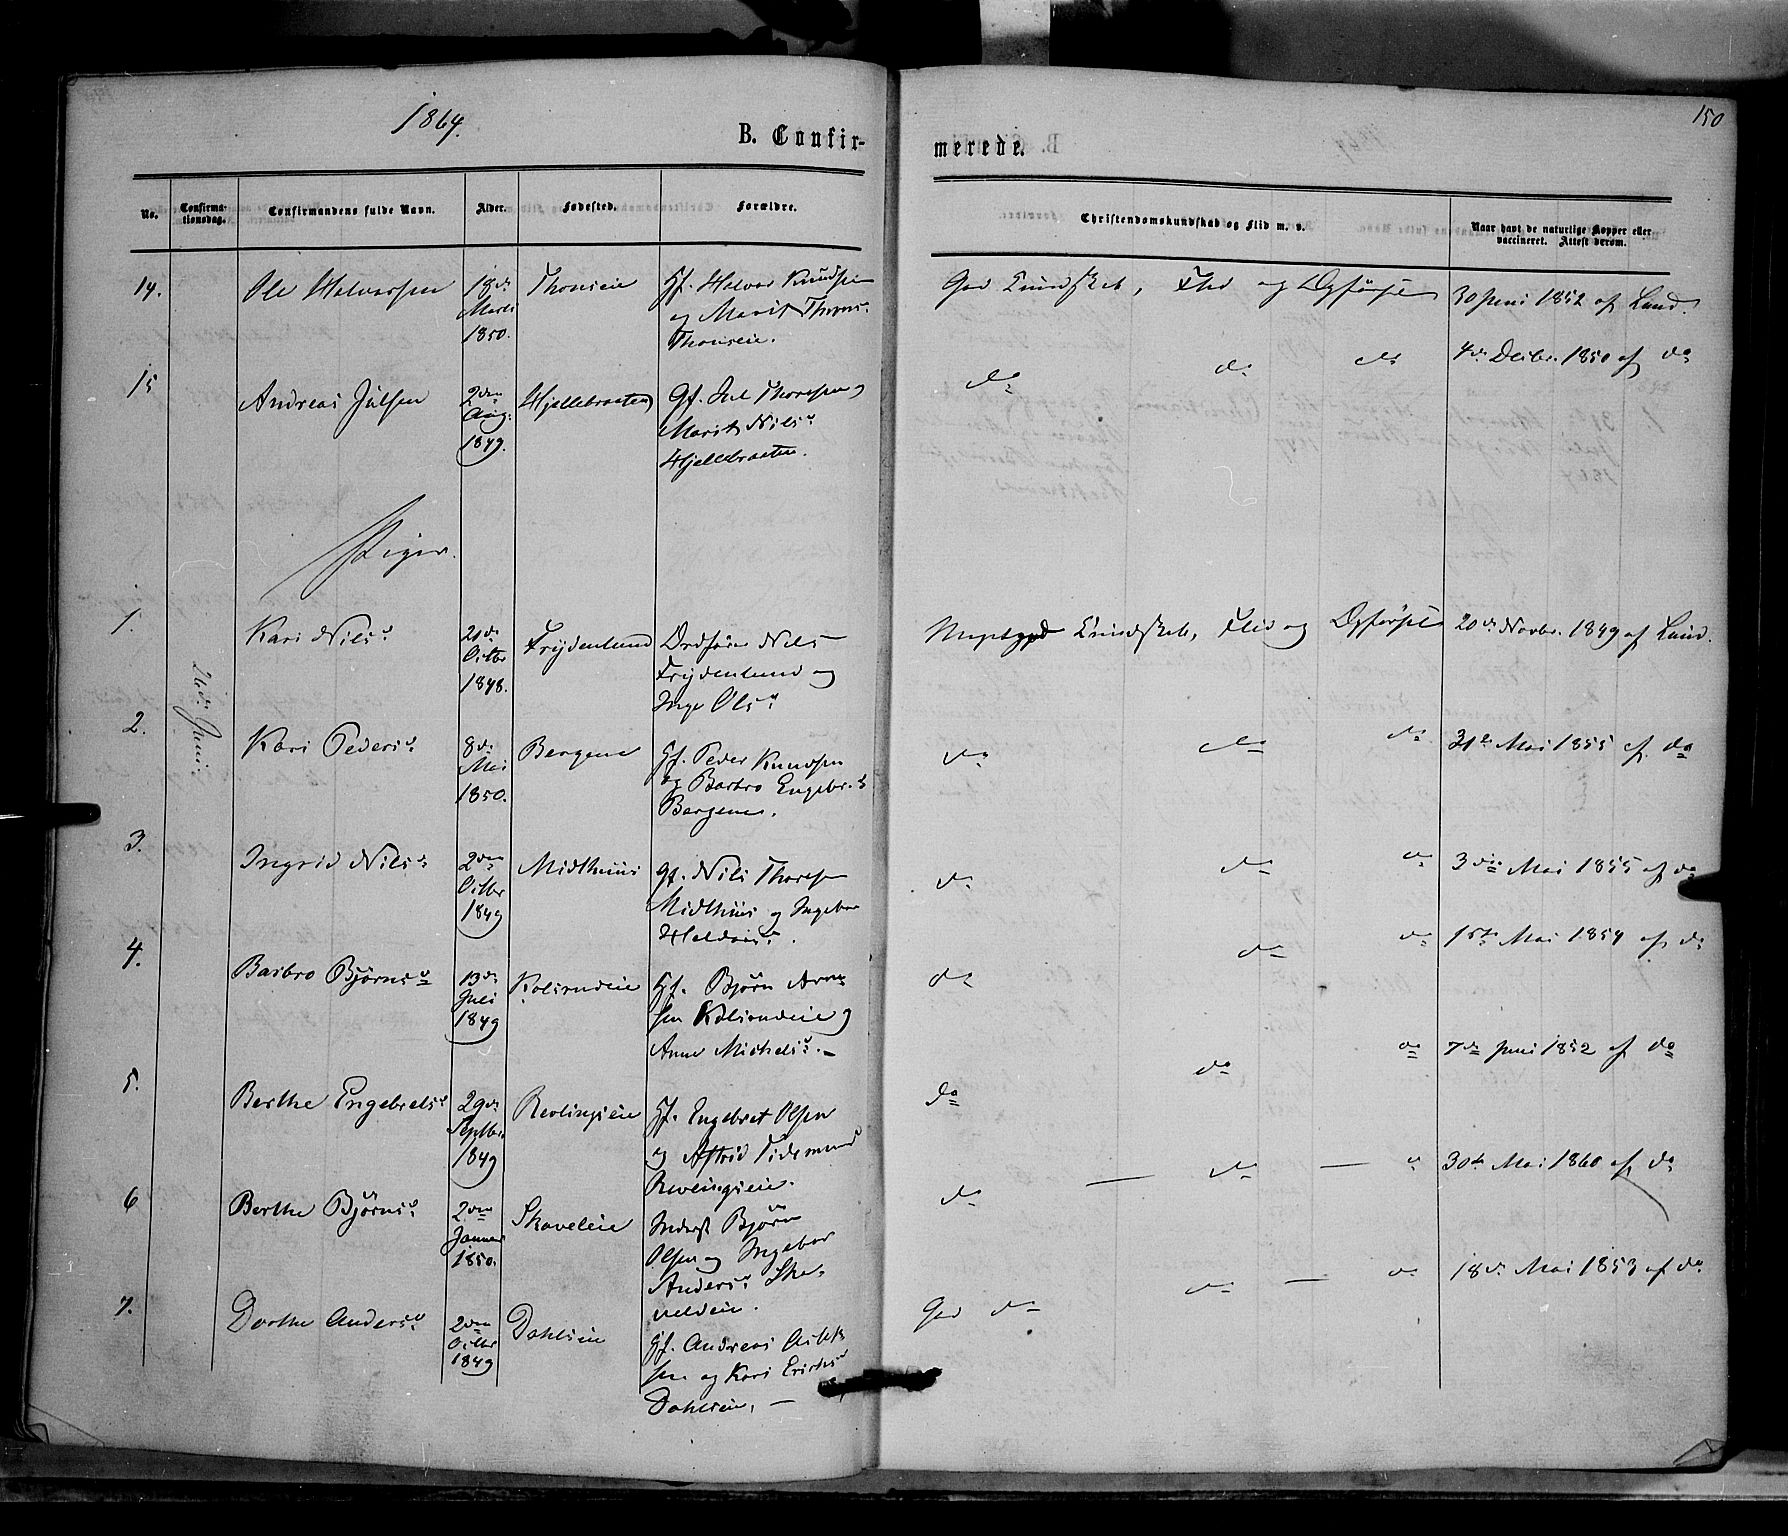 1864.
150
B. Confir-
merede.
No.
Confirma-
tionsdag.
Confirmandens fulde Navn.
Alder.
Fødested.
Forældre.
Christendomskundskab og Flid m. v.
Naar havt de naturlige Kopper eller
vaccineret. Attest derom.
14.
Ole Halvorsen
18de
Marts
1850.
Thonseie
Gf. Halvor Knudsen
og Marit Thores.
Thonseie.
God Kundskab, Flid og Opførsel
30 Juni 1852 af Lund.
15
Andreas Julsen
2den
Aug.
1849.
Hjellebraaten
Gf. Jul Thoresen og
Marit Nilsd
Hjellebraaten.
do do do
4de Decbr. 1850 af do
Piger.
26de Juni.
1.
Kari Nilsd
21de
Octbr
1848.
Frydenlund
Ordfører Nils
Frydenlund og
Inge Olsd
Meget god Kundskab, Flid og Opførsel
20de Novbr. 1849 af Lund.
2.
Kari Pedersd
8de
Mai
1850.
Bergene
Gf. Peder Knudsen
og Barbro Engebr.d
Bergene.
do do do
31te Mai 1855 af do
3.
Ingrid Nilsd
2den
Octbr
1849
Midthuus
Gf. Nils Thoresen
Midthuus og Ingebor
Haldorsd.
do do do
3die Mai 1855 af do
4.
Barbro Bjørnsd
13de
Juli
1849
Kolsrudeie
Gf. Bjørn Arne
sen Kolsrudeie og
Anne Michelsd. -
do do do
15de Mai 1854 af do
5.
Berthe Engebretsd
29de
Septbr.
1849
Revlingseie
Gf. Engebret Olsen
og Astrid Tidemand
Revlingseie.
do do do
7de Juni 1852 af do
6
Berthe Bjørnsd
2den
Januar
1850.
Skaveleie
Inderst Bjørn
Olsen og Ingebor
Andersd Ska-
veldeie.
do — do — do
30te Mai 1860 af do
7.
Dorthe Andersd
2den
Octbr
1849
Dahlseie
Gf. Andreas
sen og Kari Erichsd
Dahlseie. —
God do do — do
18de Mai 1853 af do